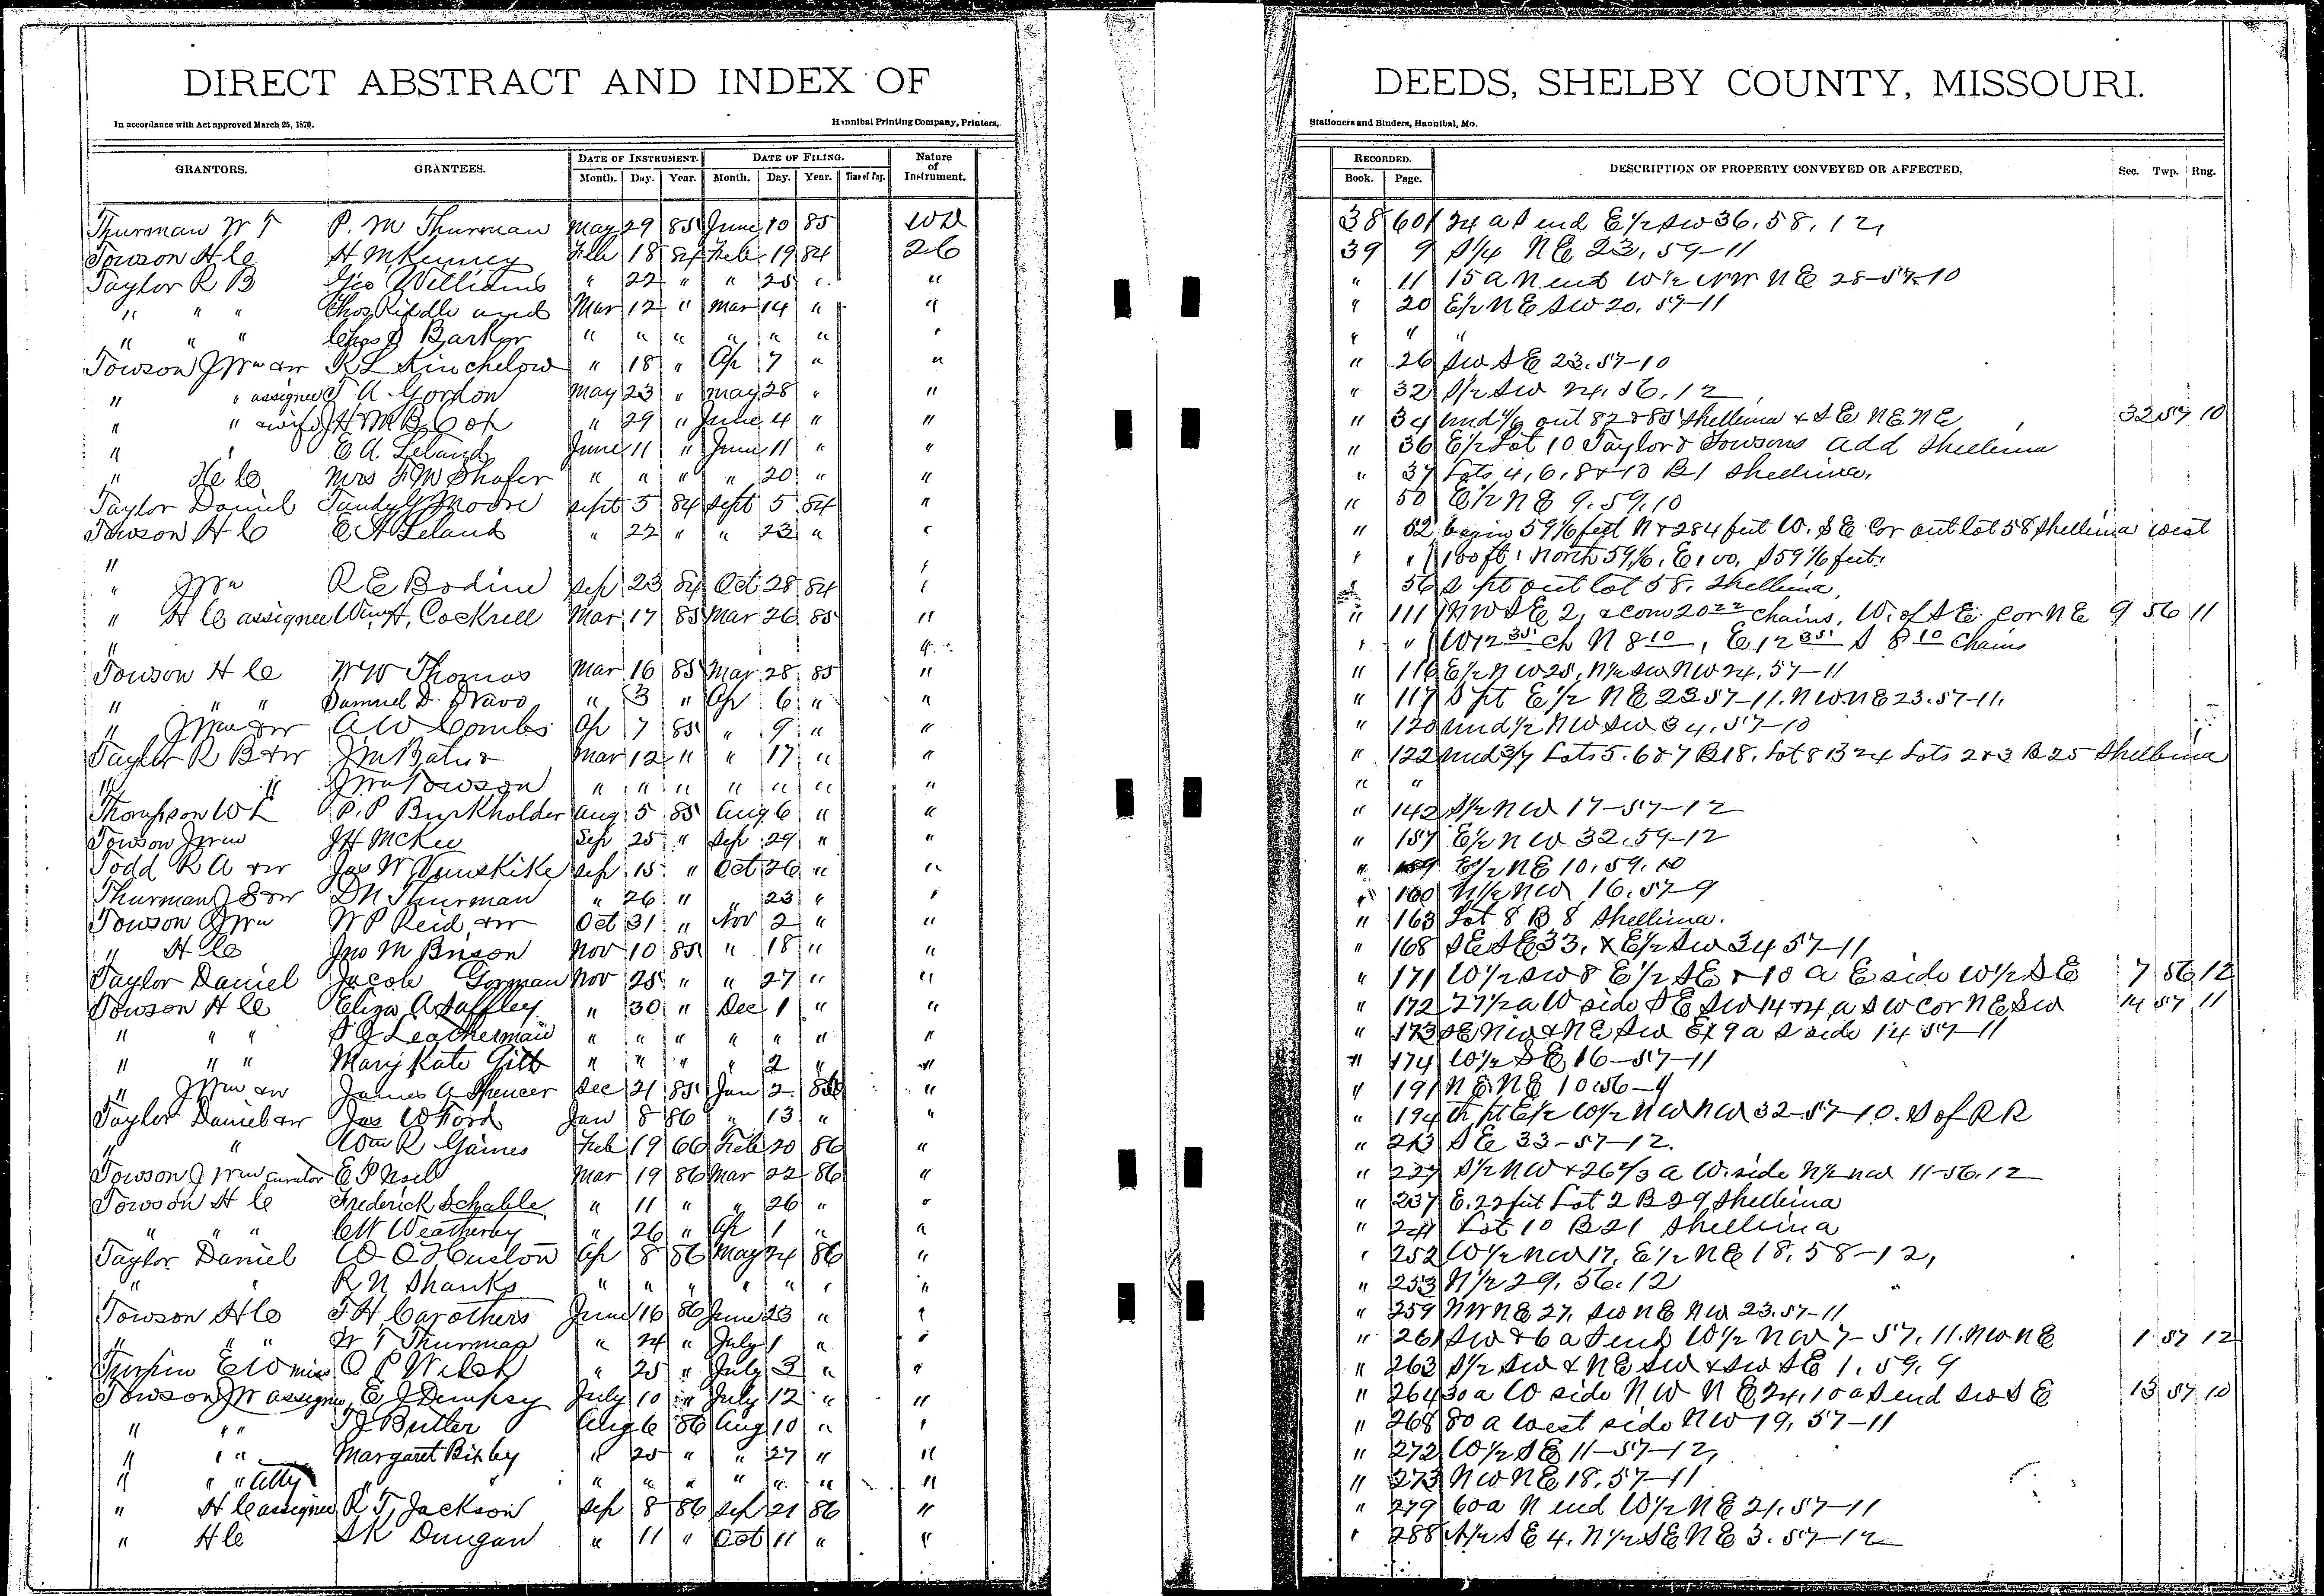 DIRECT ABSTRACT AND INDEX OF DEEDS, SHELBY COUNTY, MISSOURI.
In accordance with Act approved March 25, 1870. Hannibal Printing Company, Printers, Stationers and Binders, Hannibal, Mo.
GRANTORS. GRANTEES. DATE OF INSTRUMENT. Month. Day. Year. DATE OF FILING. Month. Day. Year. Time of Day. Nature of Instrument. RECORDED. Book. Page. DESCRIPTION OF PROPERTY CONVEYED OR AFFECTED. Sec. Twp. Rng.
Thurman W T P. M Thurman May 29 85 June 10 85 WD 38 601 24 a S end E 1/2 SW 36. 58. 12,
Towson H C H McKinney Feb 18 84 Feb 19 84 26 39 9 S 1/4 NE 23. 59-11
Taylor R B Geo Williams " 22 " " 25 " " " 11 15 a N end W 1/2 NW NE 28-57-10
" " " Chas Riddle and Mar 12 " Mar 14 " " " 20 E 1/2 NE SW 20. 57-11
" " " Chas J Barker " " " " " " " " " "
Towson J Wm & w R L Kinchelow " 18 " Ap 7 " " " 26 SW SE 23. 57-10
" " assignee T A Gordon May 23 " May 28 " " " 32 S 1/2 SW 24. 56. 12
" " & wife J H M B Cop " 29 " June 4 " " " 34 und 1/6 out 82 & 85 Shelbina & SE NE NE 32 57 10
" " E A Leland June 11 " June 11 " " " 36 E 1/2 Lot 10 Taylor & Towsons add Shelbina
" H C Mrs F M Shafer " " " " 20 " " " 37 Lots 4, 6, 8 & 10 B 1 Shelbina,
Taylor Daniel Tandy G Moore Sept 5 84 Sept 5 84 " " 50 E 1/2 NE 9. 59. 10
Towson H C E A Leland " 22 " " 23 " " " 52 begin 59 1/6 feet N & 284 feet W. SE Cor out lot 58 Shelbina west
" " " " 100 ft, North 59 1/6, E 100, S 59 1/6 feet.
" J Wm R E Bodine Sep 23 84 Oct 28 84 " " 56 S pt out lot 58. Shelbina,
" H C assignee Wm H, Cockrell Mar 17 85 Mar 26 85 " " 111 NW SE 2, & Com 20 22 chains, W. of SE cor NE 9 56 11
" " " " W 12 35 ch N 8 10, E 12 35 S 8 10 chains
Towson H C W W Thomas Mar 16 85 Mar 28 85 " " 116 E 1/2 NW 25, N 1/2 SW NW 24. 57-11
" " " Samuel D. Dravo " 3 " Ap 6 " " " 117 S pt E 1/2 NE 23 57-11. NW NE 23. 57-11.
" J Wm & w A W Combs Ap 7 85 " 9 " " " 120 und 1/2 NW SW 34. 57-10
Taylor R B & w J M Bates Mar 12 " " 17 " " " 122 und 3/7 Lots 5. 6 & 7 B 18. Lot 8 B 24 Lots 2 & 3 B 25 Shelbina
" " J Wm Towson " " " " " " " " "
Thompson W L P. P Burkholder Aug 5 85 Aug 6 " " " 142 S 1/2 NW 17-57-12
Towson J Wm J H McKee Sep 25 " Sep 29 " " " 157 E 1/2 NW 32. 59-12
Todd R A & w Jas W Vanskike Sep 15 " Oct 26 " " " 159 E 1/2 NE 10. 59. 10
Thurman J S & w D N Thurman " 26 " " 23 " " " 160 N 1/2 NW 16. 57-9
Towson J Wm W P Reid & w Oct 31 " Nov 2 " " " 163 Lot 8 B 8 Shelbina.
" H C Jno M Brison Nov 10 85 " 18 " " " 168 SE SE 33. & E 1/2 SW 34 57-11
Taylor Daniel Jacob Gorman Nov 25 " " 27 " " " 171 W 1/2 SW 8 E 1/2 SE & 10 a E side W 1/2 SE 7 56 12
Towson H C Eliza A Saffley " 30 " Dec 1 " " " 172 27 1/2 a W side SE SW 14 & 4 a SW cor NE SW 14 57 11
" " " S G Leatherman " " " " " " " " 173 SE NW & NE SW Ex 9 a S side 14 57-11
" " " Mary Kate Gill " " " " 2 " " " 174 W 1/2 SE 16-57-11
" J Wm & w James A Spencer Dec 21 85 Jan 2 86 " " 191 NE NE 10 56-9
Taylor Daniel & w Jas W Ford Jan 8 86 " 13 " " " 194 th pt E 1/2 W 1/2 NW NW 32-57-10. S of RR
" " Wm R Gaines Feb 19 66 Feb 20 86 " " 213 SE 33-57-12.
Towson J Wm Curator E P Noel Mar 19 86 Mar 22 86 " " 227 S 1/2 NW & 26 2/3 a W. side N 1/2 NW 11-56. 12
Towson H C Frederick Schable " 11 " " 26 " " " 237 E. 22 feet Lot 2 B 29 Shelbina
" " " C W Weatherby " 26 " Ap 1 " " " 241 Lot 10 B 21 Shelbina
Taylor Daniel W O Huston Ap 8 86 May 24 86 " " 252 W 1/2 NW 17. E 1/2 NE 18. 58-12,
" " R N Shanks " " " " " " " " 253 N 1/2 29. 56. 12
Towson H C F H Carothers June 16 86 June 23 " " " 259 NW NE 27. SW NE NW 23. 57-11
" " " W T Thurman " 24 " July 1 " " " 261 SW & 6 a S end W 1/2 NW 7-57. 11. NW NE 1 57 12
E W O P Welch " 25 " July 3 " " " 263 S 1/2 SW & NE SW & SW SE 1. 59. 9
Towson J W assignee E J Dempsy July 10 " July 12 " " " 264 30 a W side NW NE 24. 10 a S end SW SE 13 57 10
" " " T J Butler Aug 6 86 Aug 10 " " " 268 80 a west side NW 19. 57-11
" " " Margaret Bixby " 25 " " 27 " " " 272 W 1/2 SE 11-57-12,
" " " Atty " " " " " " " " " " 273 NW NE 18. 57-11
" H C assignee R T. Jackson Sep 8 86 Sep 21 86 " " 279 60 a N end W 1/2 NE 21. 57-11
" H C S K Dungan " 11 " Oct 11 " " " 288 N 1/2 SE 4. N 1/2 SE NE 3. 57-12